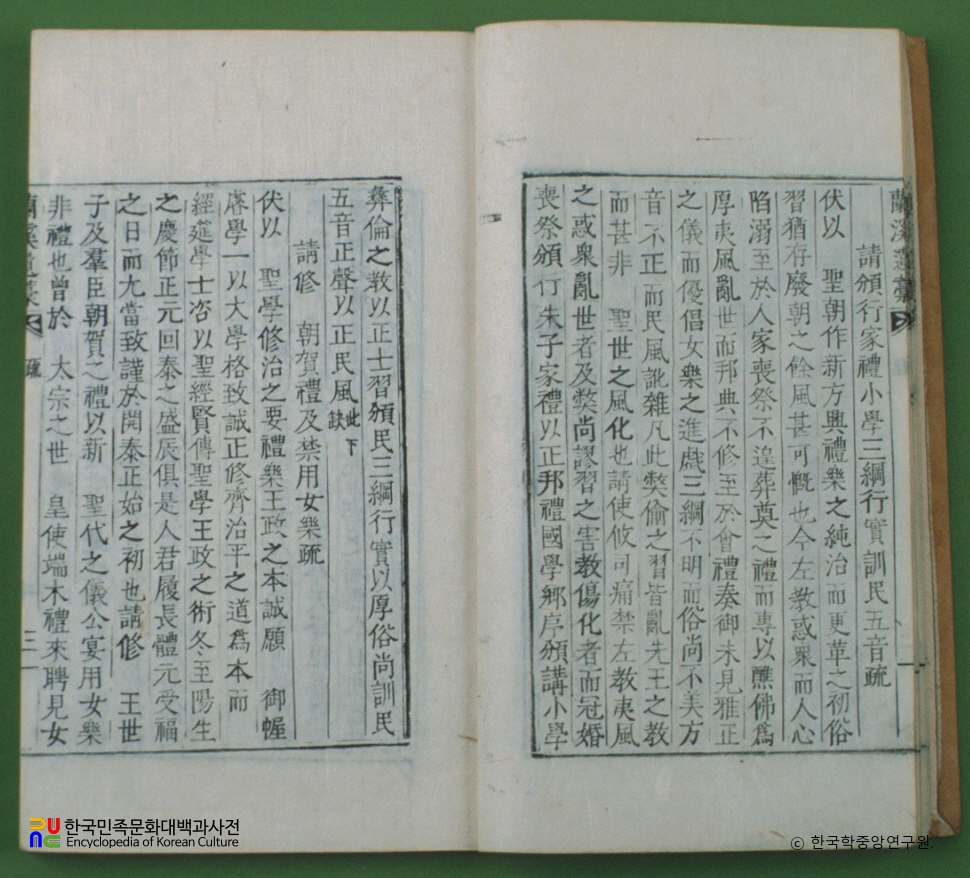 蘭溪遺藁
請頒行家禮小學三綱行實訓民五音疏
伏以 聖朝作新方興禮樂之純治而更革之初俗
習猶存廢朝之餘風甚可慨也今左教惑衆而人心
陷溺至於人家喪祭不遑葬奠之禮而專以醮佛爲
厚夷風亂世而邦典不修至於會禮奏御未見雅正
之儀而優倡女樂之進戱三綱不明而俗尚不美方
音不正而民風訛雜凡此獘倫之習皆亂先王之教
而甚非 聖世之風化也請使攸司痛禁左教夷風
之惑衆亂世者及獘尚謬習之害教傷化者而冠婚
喪祭頒行朱子家禮以正邦禮國學鄕序頒講小學
彜倫之教以正士習頒民三綱行實以厚俗尚訓民
五音正聲以正民風此下缺
請修 朝賀禮及禁用女樂疏
伏以 聖學修治之要禮樂王政之本誠願 御幄
睿學一以大學格致誠正修齊治平之道爲本而
經筵學士咨以聖經賢傳聖學王政之術冬至陽生
之慶節正元回泰之盛辰俱是人君履長體元受福
之日而尤當致謹於開泰正始之初也請修 王世
子及羣臣朝賀之禮以新 聖代之儀公宴用女樂
非禮也曾於 太宗之世 皇使端木禮來聘見女
蘭溪遺藁 疏 三
한국민족문화대백과사전
Encyclopedia of Korean Culture
© 한국학중앙연구원